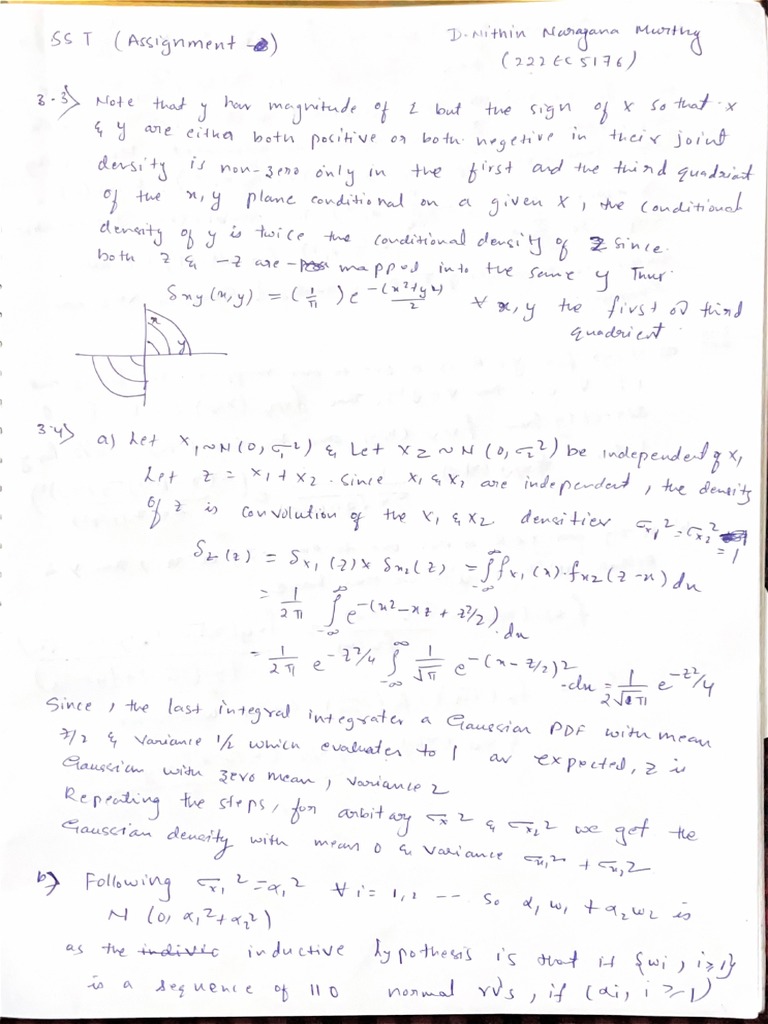 SST (Assignment -2)
D. Nithin Narayana Murthy
(222EC5176)
3.3) Note that y has magnitude of z but the sign of x so that x
& y are either both positive or both negetive in their joint
density is non-zero only in the first and the third quadriant
of the x, y plane conditional on a given X, the conditional
density of y is twice the conditional density of z since.
both z & -z are mapped into the same y Thus.
fxy(x,y) = (1/π) e^-(x²+y²)/2 ∀ x, y the first or third
quadrient
x
y
3.4) a) Let X₁~N(0, σ₁²) & Let X2 ~ N(0, σ₂²) be independent of X₁
Let z = x₁ + x₂. Since x₁ & x₂ are independent, the density
of z is convolution of the X₁ & X2 densities σx₁² = σx₂² = 1
fz(z) = fx₁(z) x fx₂(z) = ∫^∞_-∞ fx₁(x).fx₂(z-x) dx
= 1/2π ∫^∞_-∞ e^-(x²-xz+z²/2) .dx
= 1/2π e^-z²/4 ∫^∞_-∞ 1/√π e^-(x-z/2)² .dx = 1/2√π e^-z²/4
Since, the last integral integrates a Gaussian PDF with mean
z/2 & variance 1/2 which evaluates to 1 as expected, z is
Gaussian with zero mean, variance 2
Repeating the steps, for arbitary σx² & σx₂² we get the
Gaussian density with mean 0 & variance σx₁² + σx₂2
b) Following σx₁² = α₁² ∀ i = 1, 2 -- So α₁ w₁ + α₂ w₂ is
N (0, α₁² + α₂²)
as the indivic inductive hypothesis is that if {wi, i≥1}
is a sequence of 110 normal rv's, if (αi, i≥1)